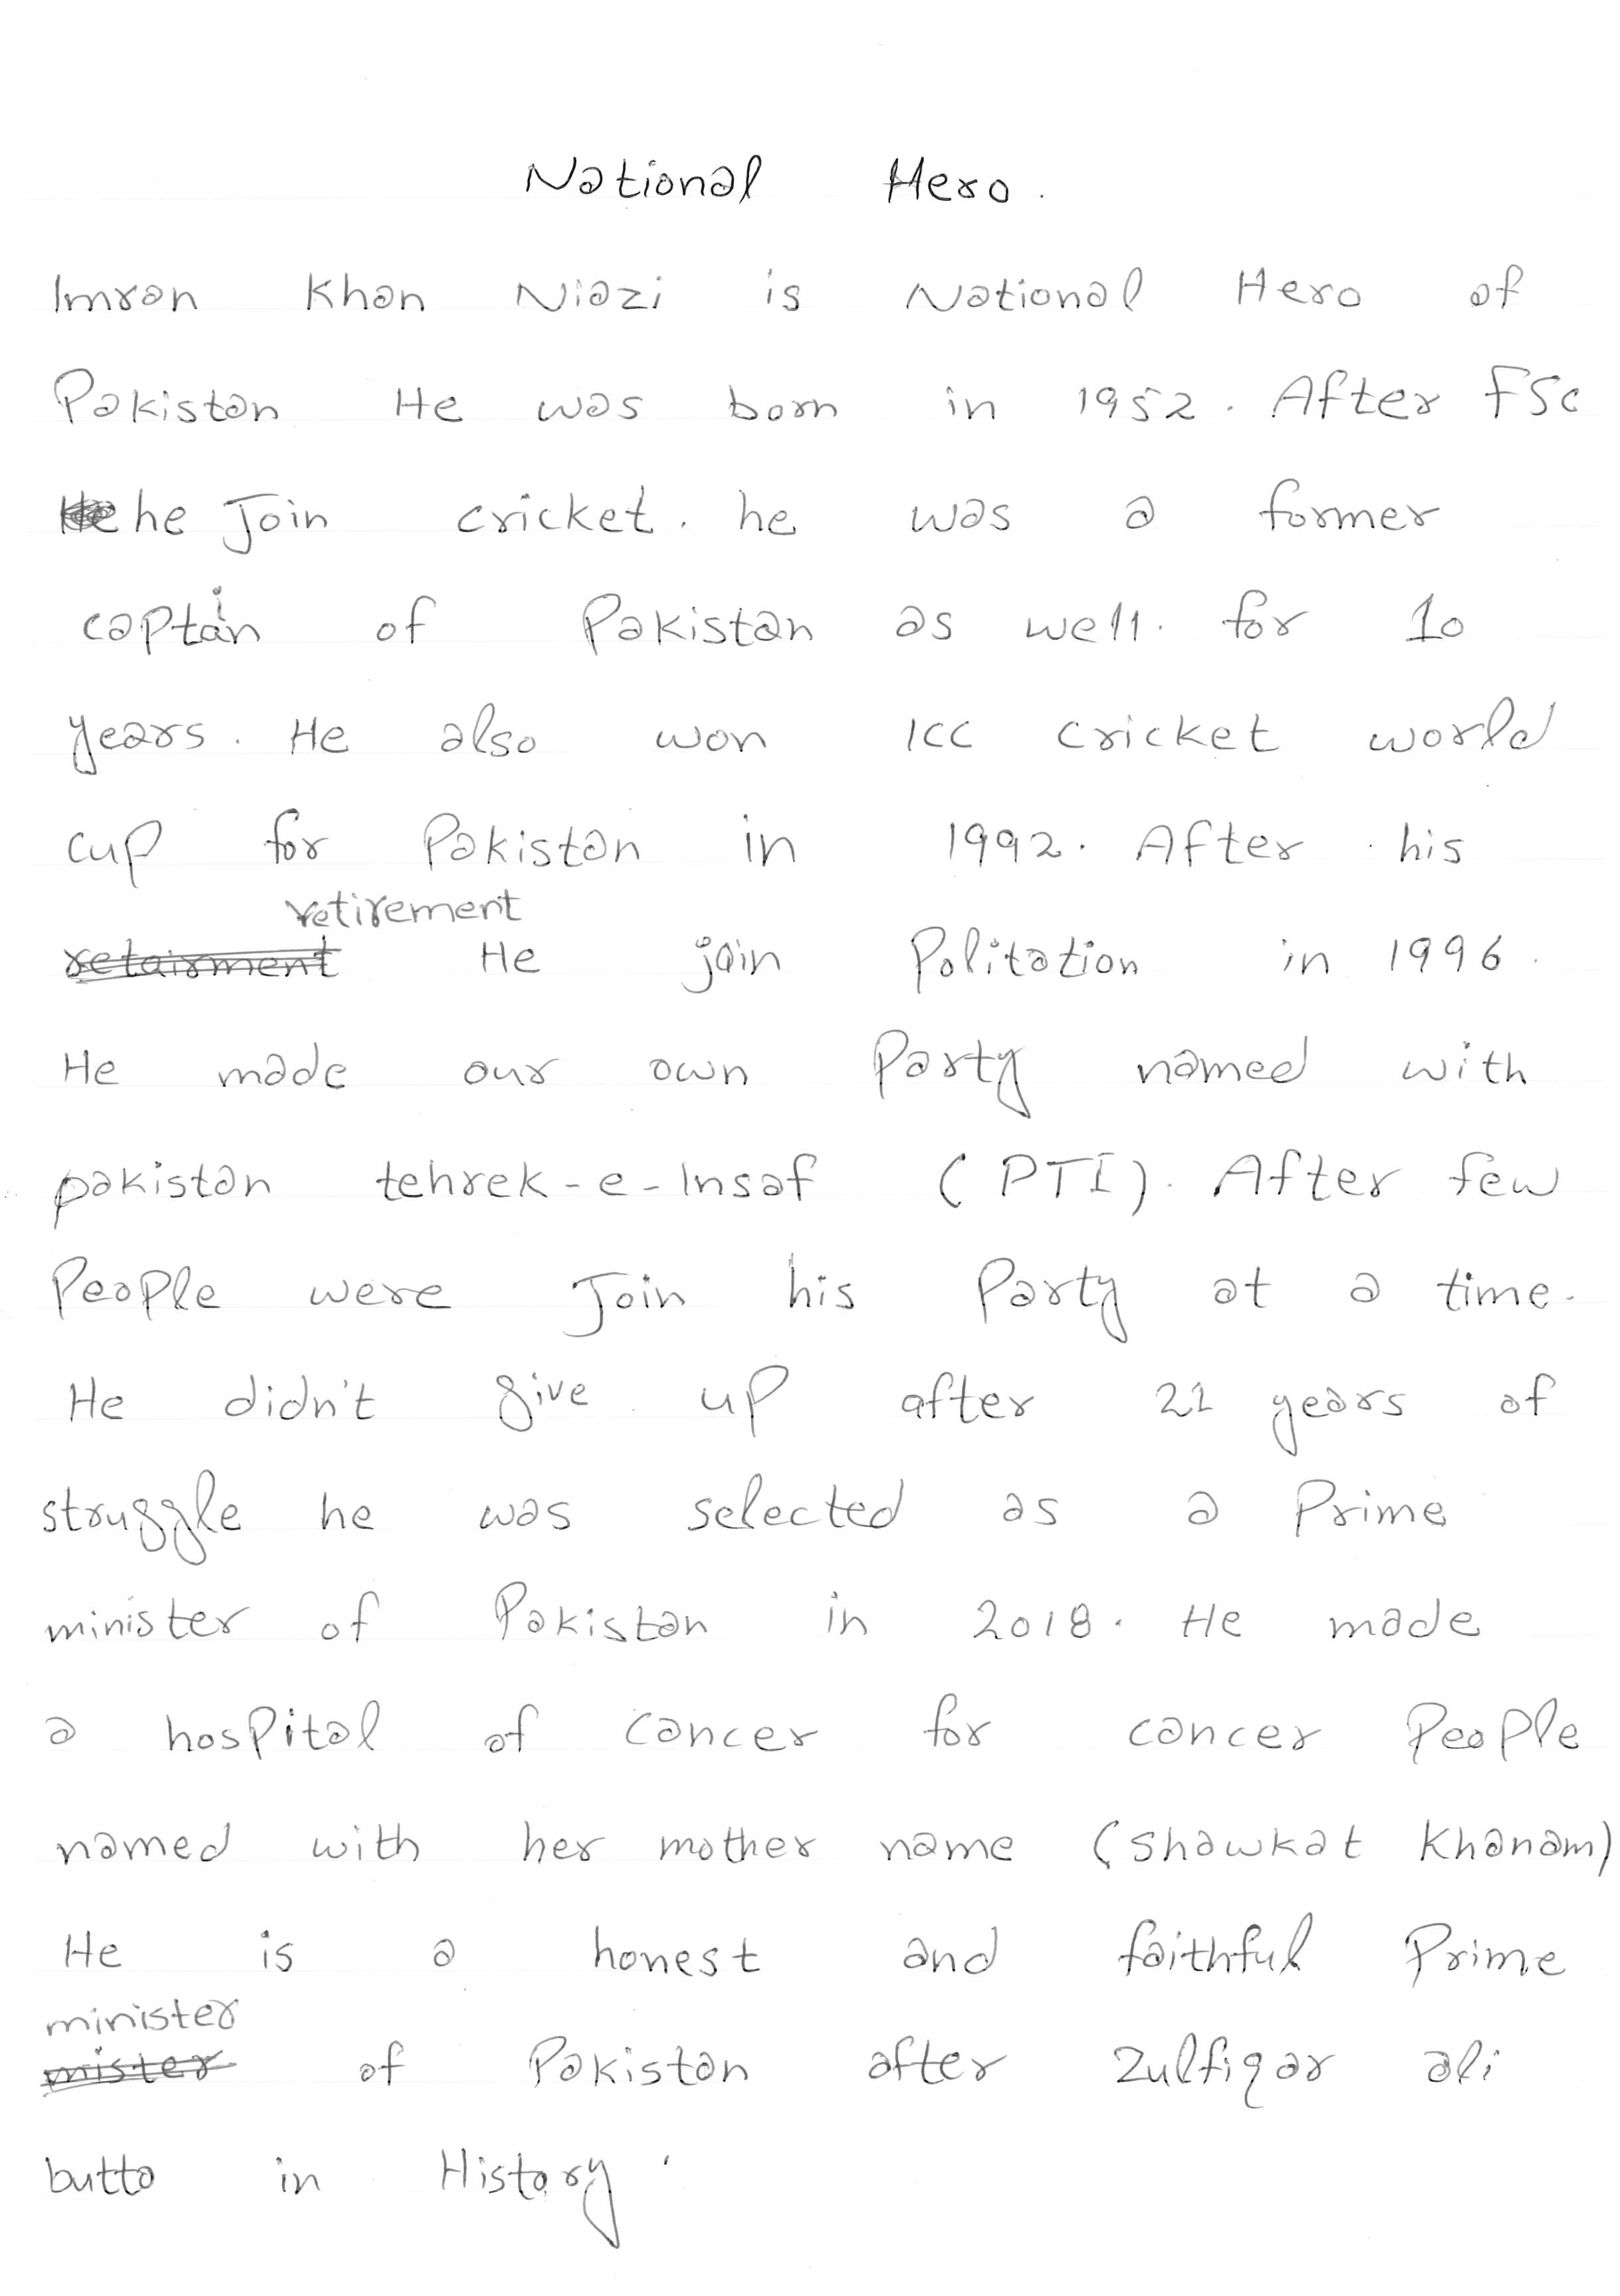 National Hero.
Imran Khan Niazi is National Hero of
Pakistan He was born in 1952. After FSc
he Join cricket. he was a former
captain of Pakistan as well. for 10
years. He also won ICC cricket world
cup for Pakistan in 1992. After his
retirement
retairment He join Politation in 1996.
He made our own Party named with
pakistan tehrek-e-Insaf (PTI). After few
People were Join his Party at a time.
He didn't give up after 21 years of
struggle he was selected as a Prime
minister of Pakistan in 2018. He made
a hospital of cancer for cancer People
named with her mother name (Shawkat Khanam)
He is a honest and faithful Prime
minister
mister of Pakistan after Zulfiqar ali
butto in History.